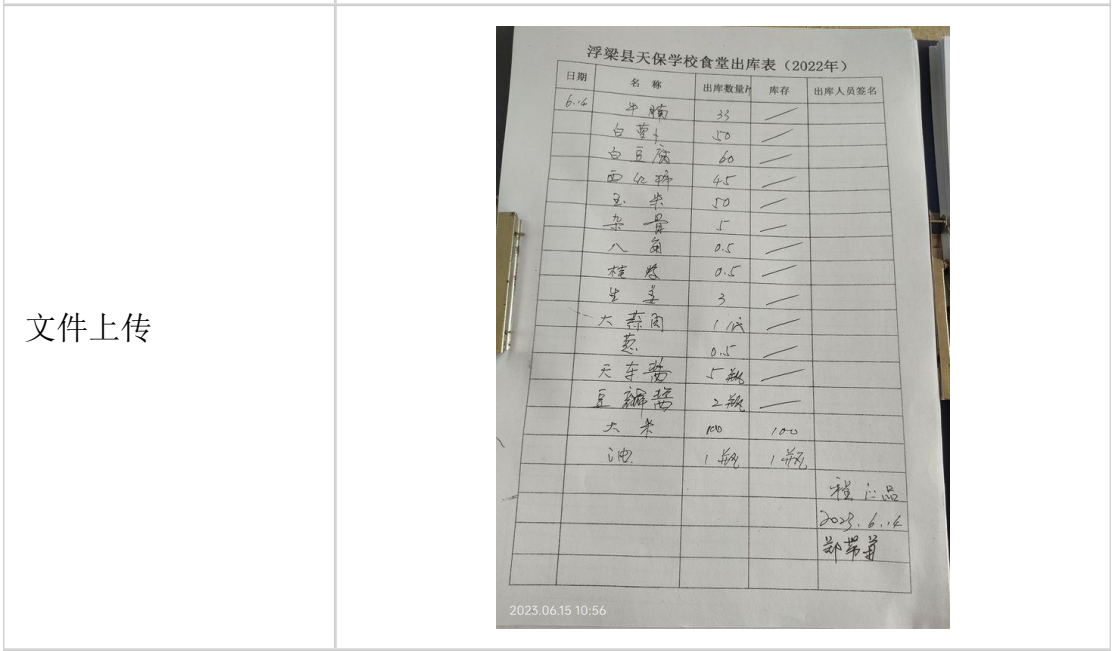 浮梁县天保学校食堂出库表（2022年）
日期 名 称 出库数量 库存 出库人员签名
6.14 牛腩 33
白萝卜 50
白豆腐 60
西红柿 45
玉米 50
杂骨 5
八角 0.5
桂皮 0.5
生姜 3
文件上传
大蒜肉 1
葱 0.5
天车酱 5瓶
豆瓣酱 2瓶
大米 100 100
油 1瓶 1瓶
程 品
2023.6.14
郑
2023.06.15 10:56